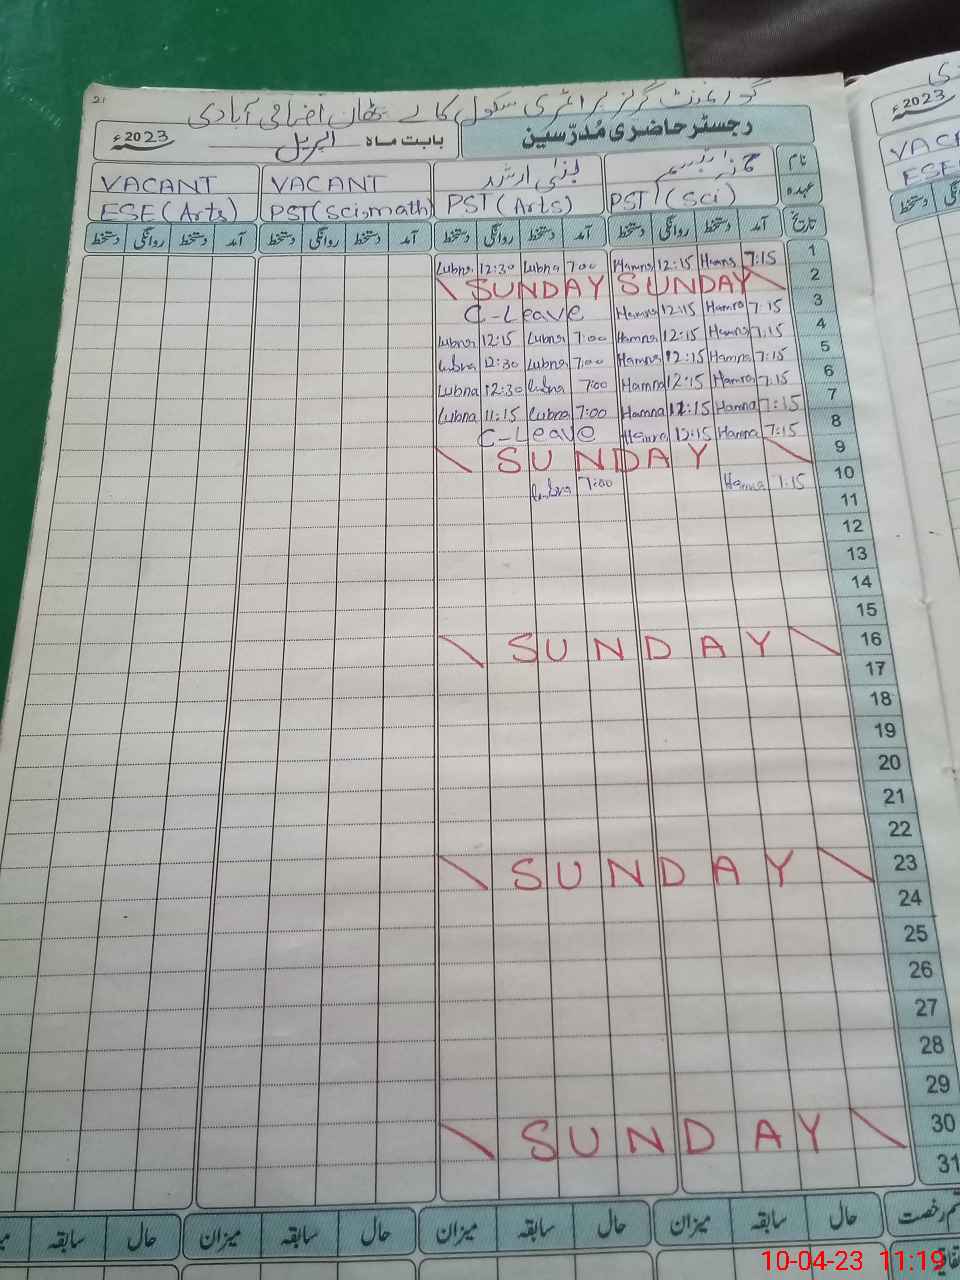 21
گورنمنٹ گرلز پرائمری سکول کالے پٹھان اضافی آبادی
رجسٹر حاضری مُدرّسین بابت ماہ اپریل 2023ء
نام لبنٰی ارشد VACANT VACANT
عہدہ PST (Sci) PST (Arts) PST (Sci math) ESE (Arts)
تاریخ آمد دستخط روانگی دستخط آمد دستخط روانگی دستخط آمد دستخط روانگی دستخط آمد دستخط روانگی دستخط
Lubna 12:30 Lubna 7:00 Hamna 12:15 Hamna 7:15 1
SUNDAY SUNDAY 2
C-Leave Hamna 12:15 Hamna 7:15 3
Lubna 12:15 Lubna 7:00 Hamna 12:15 Hamna 7:15 4
Lubna 12:30 Lubna 7:00 Hamna 12:15 Hamna 7:15 5
Lubna 12:30 Lubna 7:00 Hamna 12:15 Hamna 7:15 6
Lubna 11:15 Lubna 7:00 Hamna 12:15 Hamna 7:15 7
C-Leave Hamna 12:15 Hamna 7:15 8
SUNDAY 9
Lubna 7:00 Hamna 7:15 10
11
12
13
14
15
SUNDAY 16
17
18
19
20
21
22
SUNDAY 23
24
25
26
27
28
29
SUNDAY 30
31
رخصت حال سابقہ میزان حال سابقہ میزان حال سابقہ میزان حال سابقہ
10-04-23 11:19
2023ء
VAC
ESE
دستخط